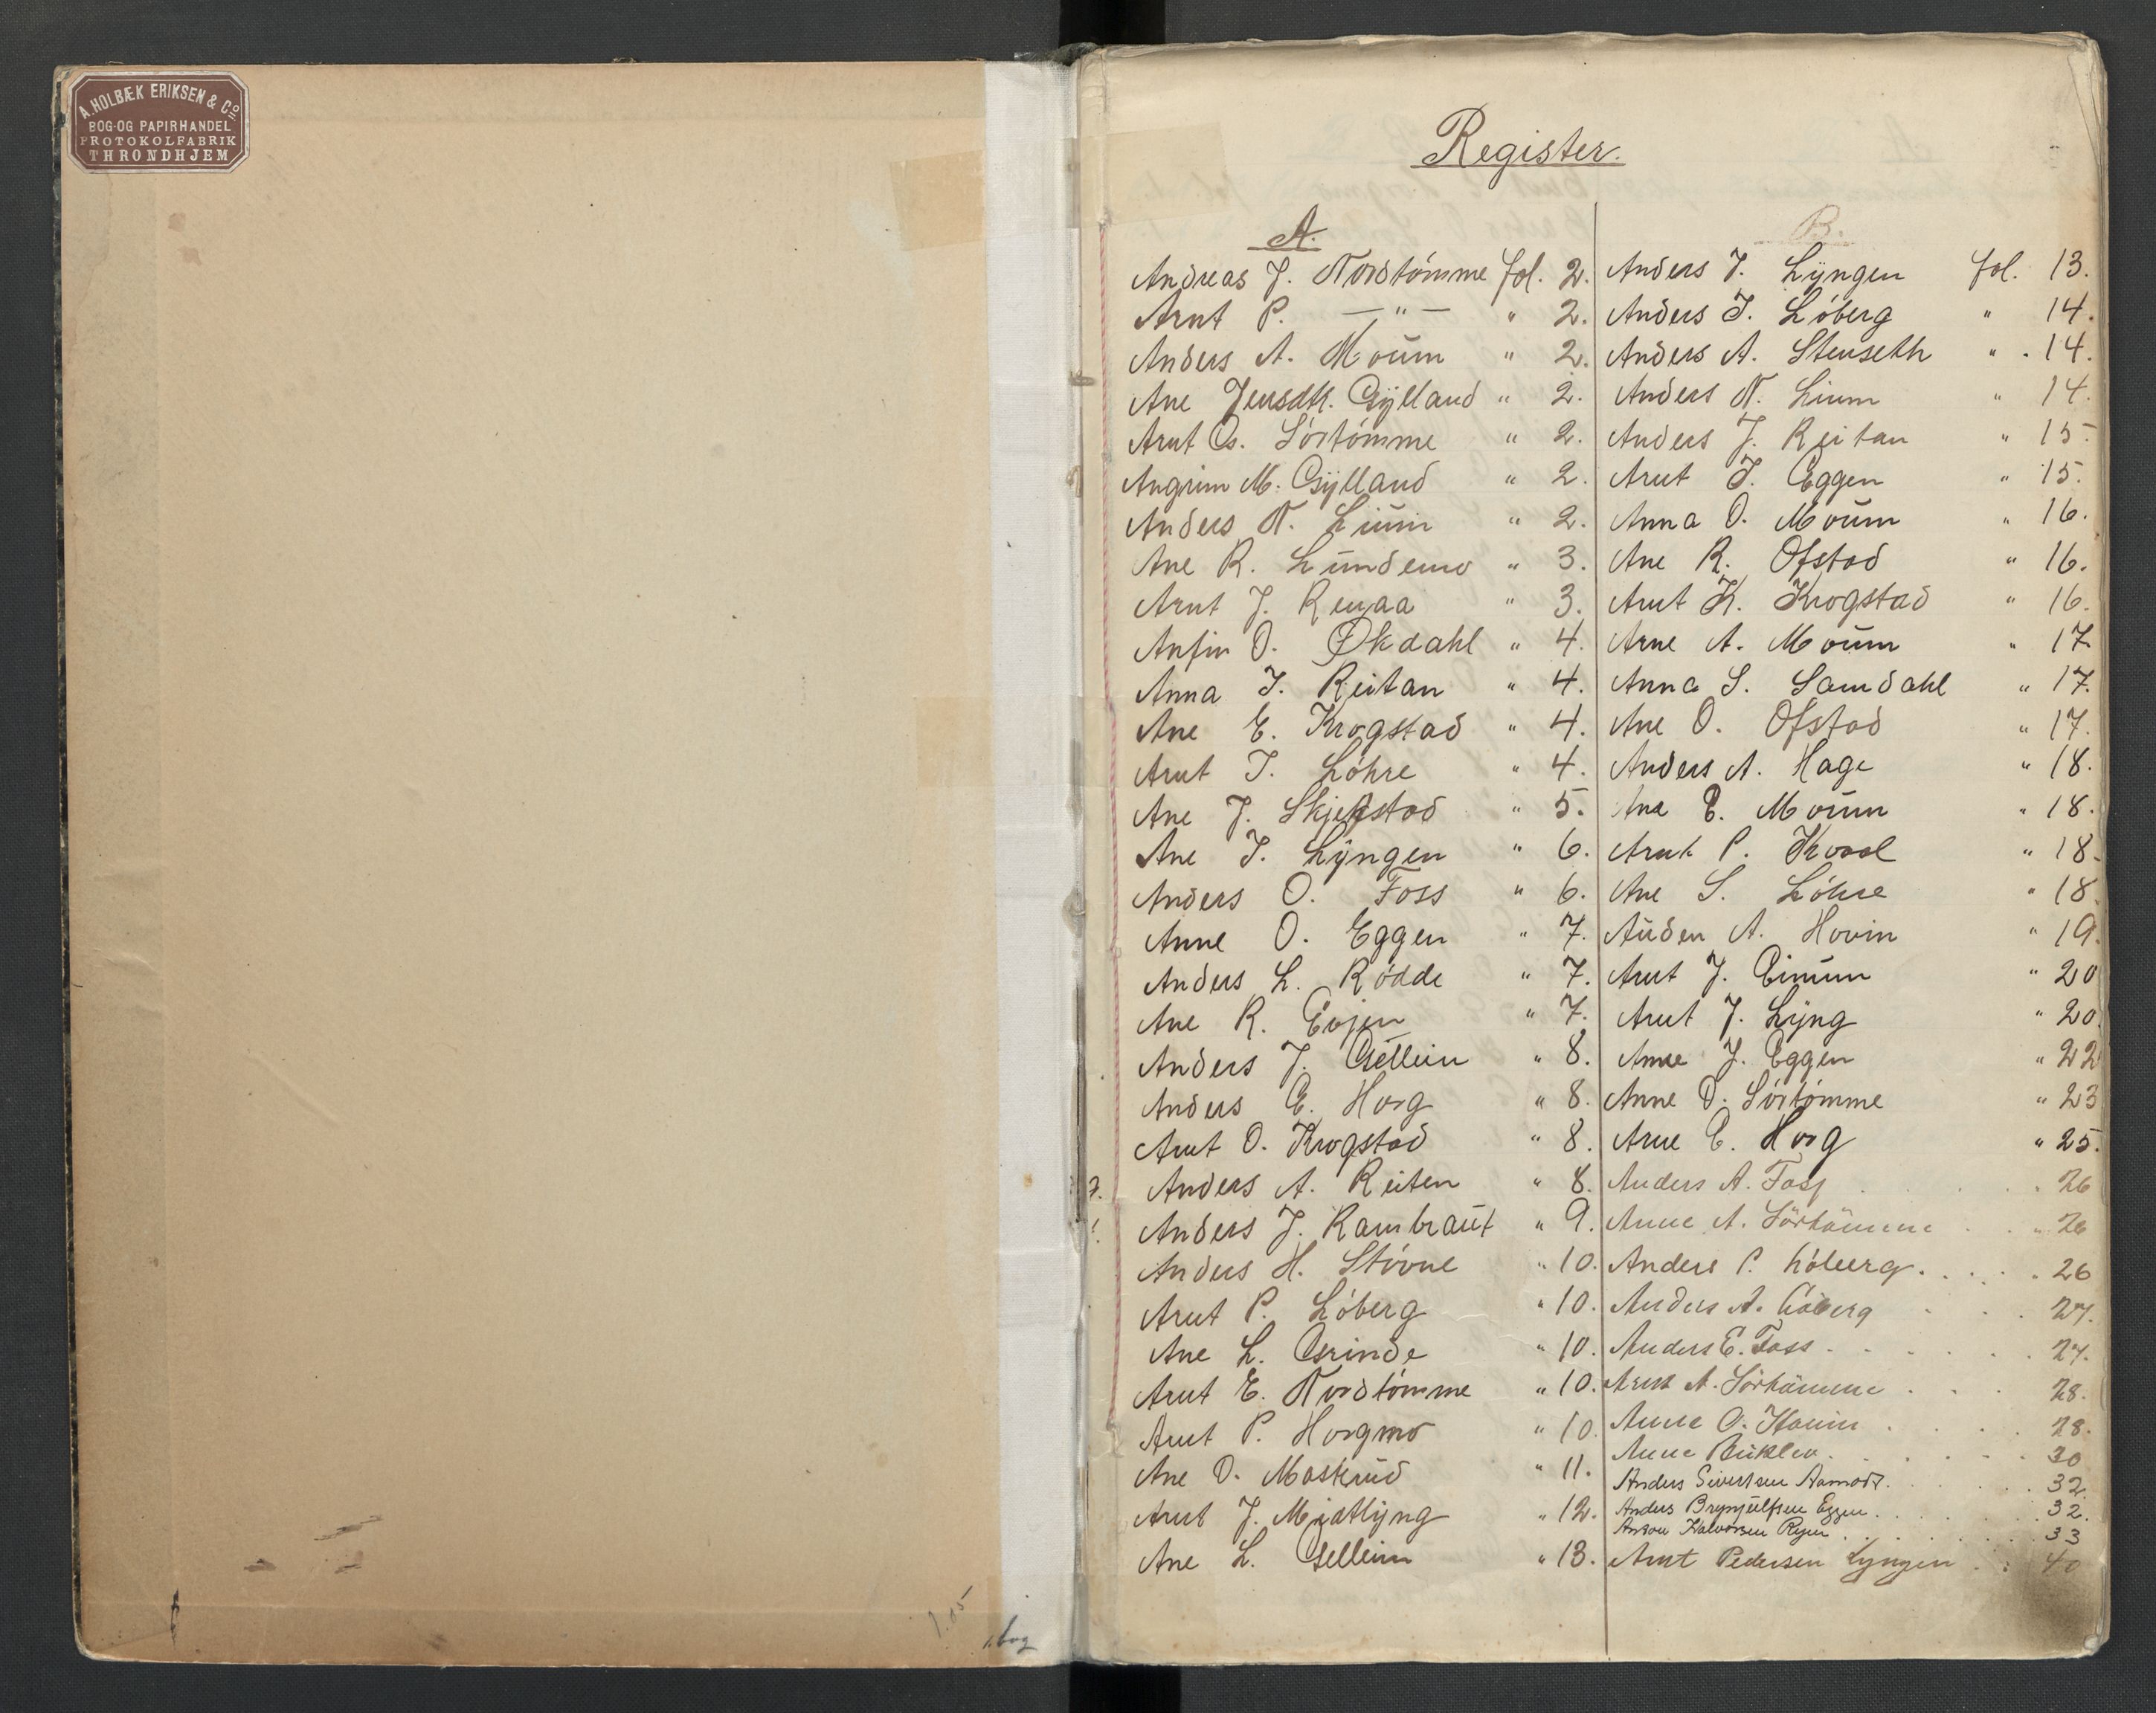 A. HOLBÆK ERIKSEN & Co
BOG-OG PAPIRHANDEL
PROTOKOLFABRIK
THRONDHJEM
Register.
A.
Andreas J. Nordtømme fol. 2.
Arnt P. —"— " 2.
Anders A. Moum " 2.
Ane Jensdtr. Gylland " 2.
Arnt Os. Sørtømme " 2.
Angrim M. Gylland " 2.
Anders N. Lium " 2.
Ane R. Lundemo " 3.
Arnt J. Renaa " 3.
Anfin O. Økdahl " 4.
Anna I. Reitan " 4.
Ane E. Krogstad " 4.
Arnt I. Løhre " 4.
Ane J. Skjerstad " 5.
Ane I. Lyngen " 6.
Anders O. Foss " 6.
Anne O. Eggen " 7.
Anders L. Rødde " 7.
Ane R. Evjen " 7.
Anders J. Gellein " 8.
Anders E. Horg " 8.
Arnt O. Krogstad " 8.
Anders A. Reiten " 8.
Anders J. Rambraut " 9.
Anders H. Støvne " 10.
Arnt P. Løberg " 10.
Ane L. Grinde " 10.
Arnt E. Nordtømme " 10.
Arnt P. Horgmo " 10.
Ane O. Mosterud " 11.
Arnt J. Midtlyng " 12.
Ane L. Gellein " 13.
B.
Anders J. Lyngen fol. 13.
Anders I. Løberg " 14.
Anders A. Stenseth " 14.
Anders N. Lium " 14.
Anders J. Reitan " 15.
Arnt I. Eggen " 15.
Anna O. Moum " 16.
Ane R. Ofstad " 16.
Arnt K. Krogstad " 16.
Arne A. Moum " 17
Anna S. Samdahl " 17.
Ane O. Ofstad " 17.
Anders A. Hage " 18.
Ane E. Moum " 18.
Arnt P. Kvaal " 18.
Ane S. Løhre " 18.
Auden A. Hovin " 19.
Arnt J. Einum " 20
Arnt J. Lyng " 20.
Anne J. Eggen " 22
Anne O. Sørtømme " 23
Arne E. Horg " 25.
Anders A. Foss " 26
Anne A. Sørtømme " 26
Anders P. Løberg. . . . . 26
Anders A. Løberg . . 27.
Anders E. Foss . . . . . . 27.
Arnt A. Sørtømme . . . 28.
Anne O. Hovin . . . . 28.
Anne Buklev . . . . . 30
Anders Sivertsen Aamodt . . . . . 32.
Anders Brynjulfsen Eggen . . . . . 32.
Anton Halvorsen Ryen . . . . . 33
Arnt Pedersen Lyngen . . 40
1.05
1. bog